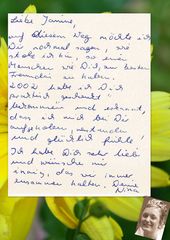 Liebe Janine,
auf diesem Weg möchte ich
Dir nochmal sagen, wie
stolz ich bin, so einen
Menschen wie Dich zur besten
Freundin zu haben.
2002 habe ich Dich
"geschenkt"
bekommen und erkannt,
dass ich mich bei Dir
aufgehoben, verstanden
und glücklich fühle!
Ich habe Dich sehr lieb
und wünsche mir
innig, das wir immer
zusammen halten. Deine
Nina